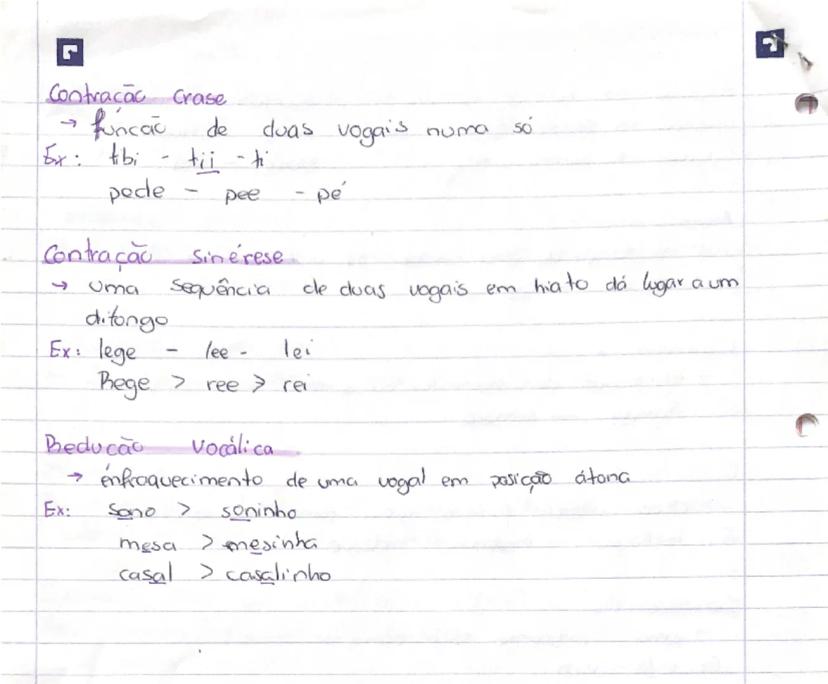 Contração crase
→ função de duas vogais numa só
Ex: tibi - tii - ti
pede - pee - pé
Contração sinérese
→ uma sequência de duas vogais em hiato dá lugar a um
ditongo
Ex: lege - lee - lei
Rege > ree > rei
Redução vocálica
→ enfraquecimento de uma vogal em posição átona
Ex: sono > soninho
mesa > mesinha
casal > casalinho